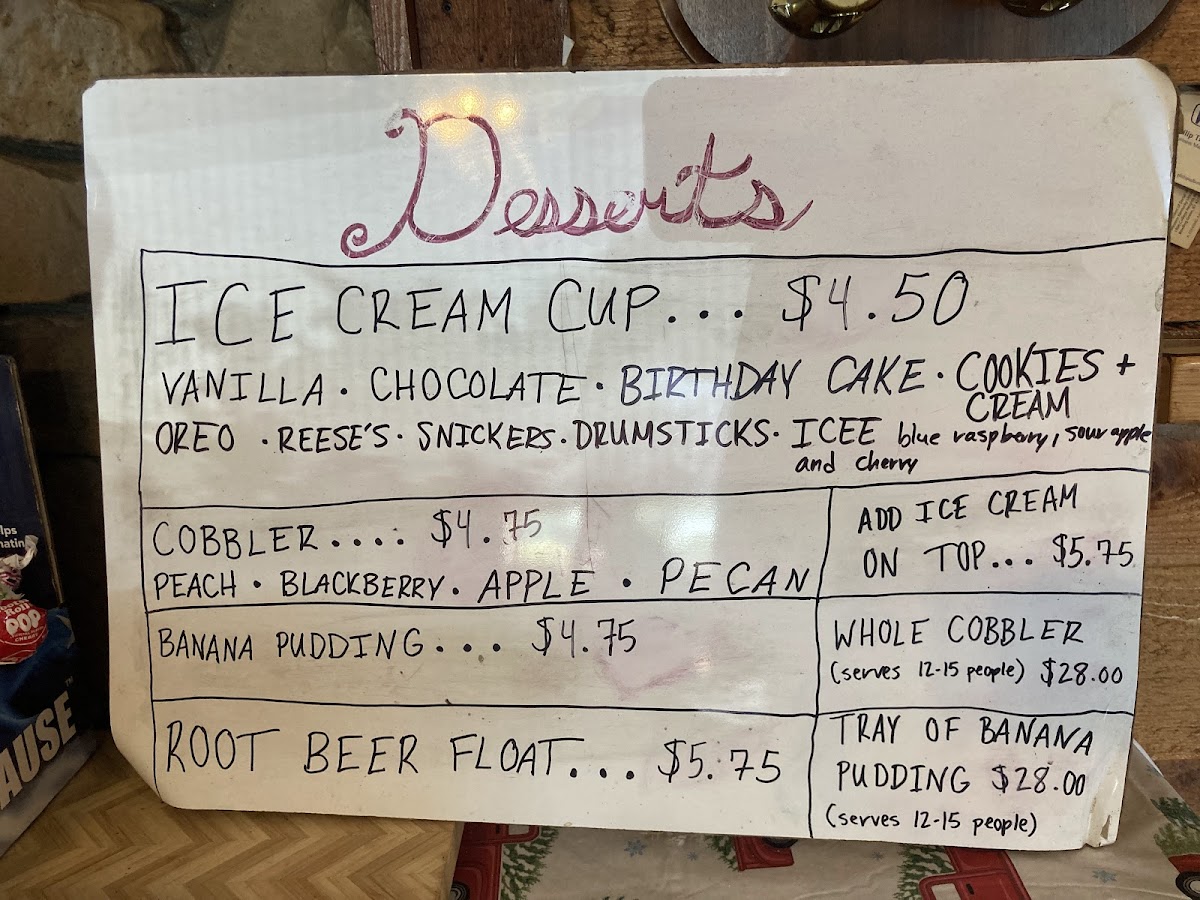 Desserts
ICE CREAM CUP... $4.50
VANILLA · CHOCOLATE · BIRTHDAY CAKE · COOKIES +
CREAM
OREO · REESE'S · SNICKERS · DRUMSTICKS · ICEE blue raspberry, sour apple
and cherry
COBBLER.... $4.75
PEACH · BLACKBERRY · APPLE · PECAN
ADD ICE CREAM
ON TOP... $5.75
BANANA PUDDING... $4.75
WHOLE COBBLER
(serves 12-15 people) $28.00
ROOT BEER FLOAT... $5.75
TRAY OF BANANA
PUDDING $28.00
(serves 12-15 people)
Roll
POP
AUSE